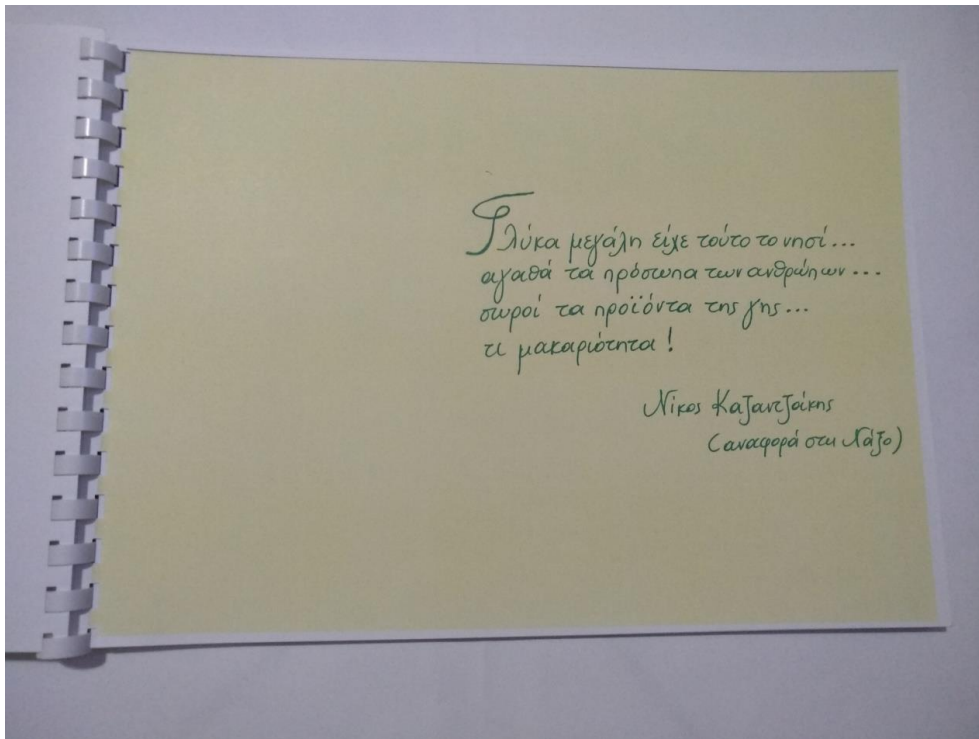 Γλύκα μεγάλη είχε τούτο το νησί...
αγαθά τα πρόσωπα των ανθρώπων...
σωροί τα προϊόντα της γης...
τι μακαριότητα!
Νίκος Καζαντζάκης
(αναφορά στη Νάξο)